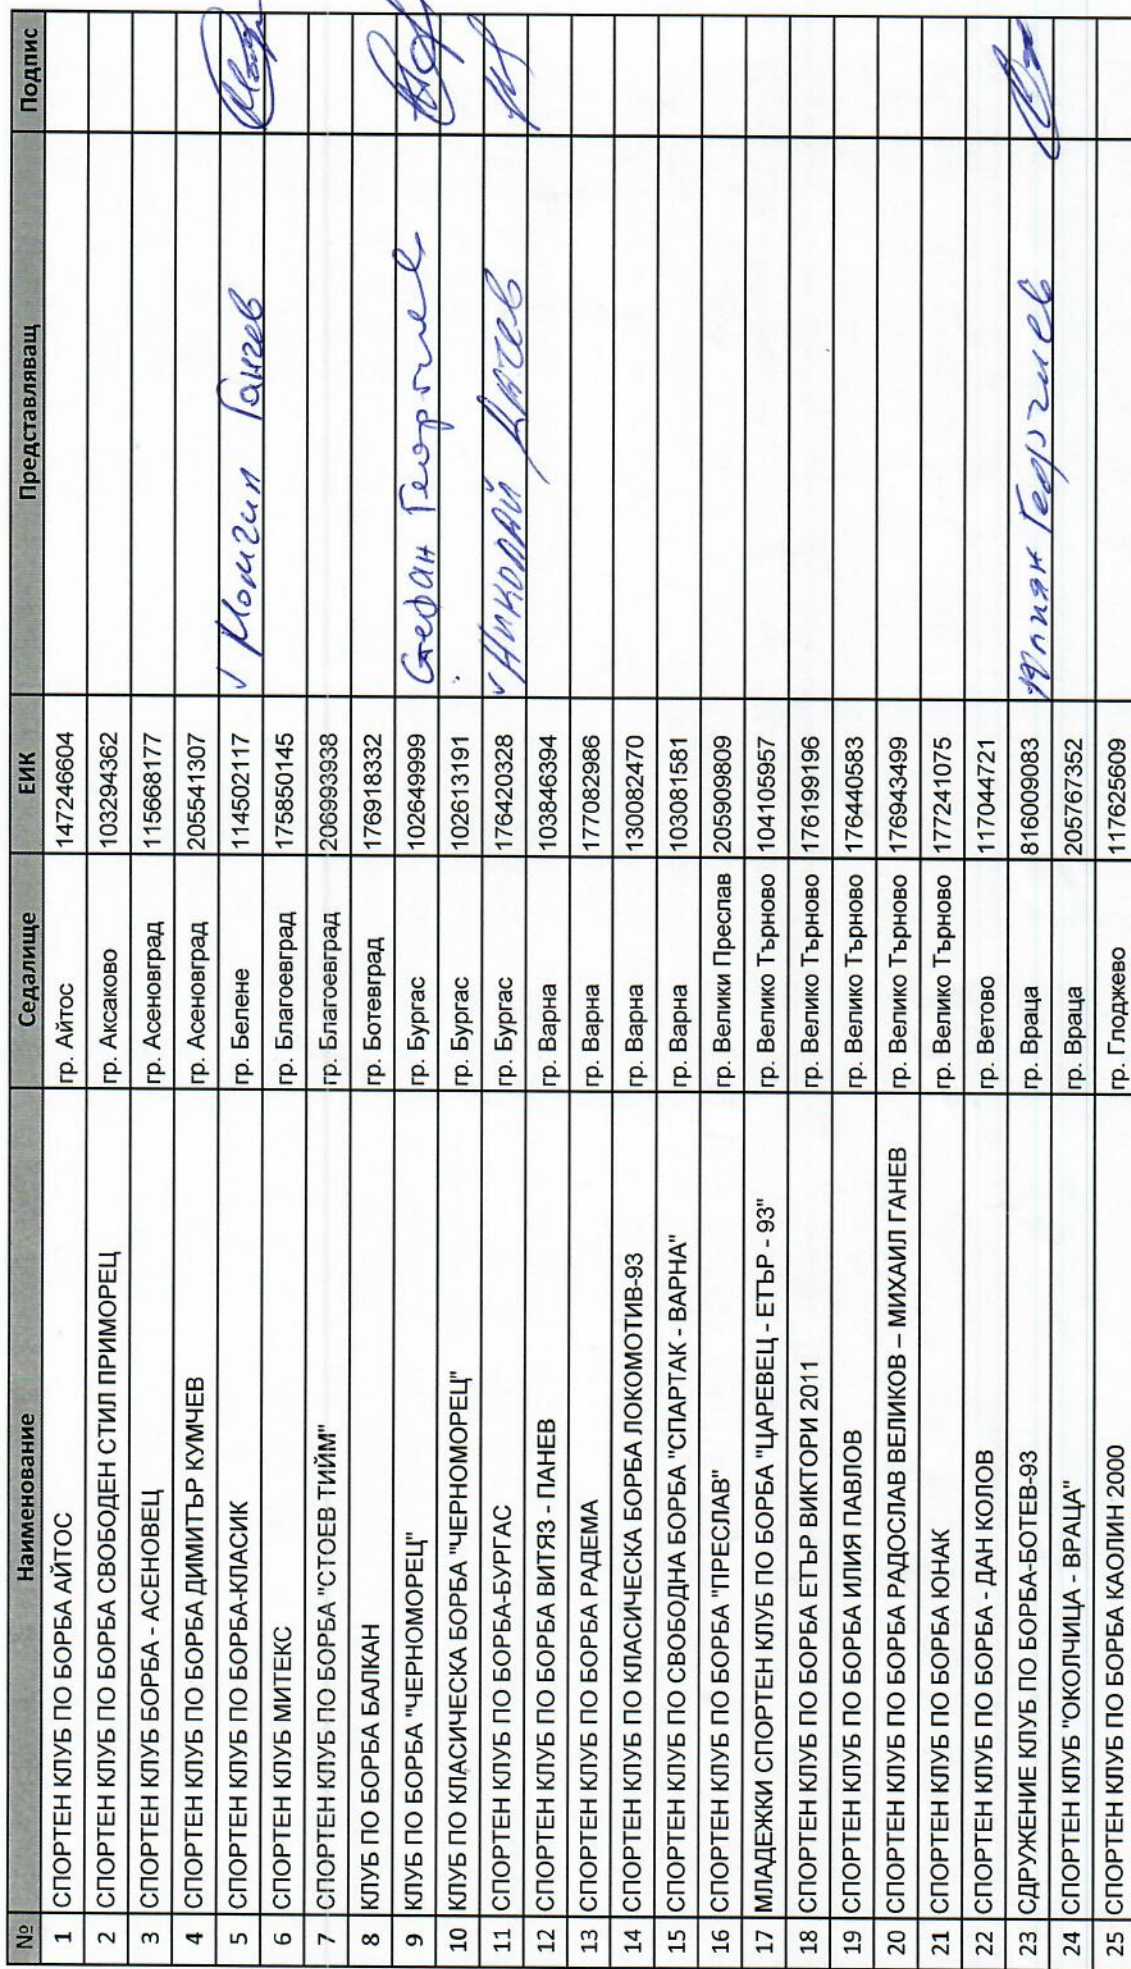 № Наименование Седалище ЕИК Представляващ Подпис
1 СПОРТЕН КЛУБ ПО БОРБА АЙТОС гр. Айтос 147246604
2 СПОРТЕН КЛУБ ПО БОРБА СВОБОДЕН СТИЛ ПРИМОРЕЦ гр. Аксаково 103294362
3 СПОРТЕН КЛУБ БОРБА - АСЕНОВЕЦ гр. Асеновград 115668177
4 СПОРТЕН КЛУБ ПО БОРБА ДИМИТЪР КУМЧЕВ гр. Асеновград 205541307
5 СПОРТЕН КЛУБ ПО БОРБА-КЛАСИК гр. Белене 114502117 Момчил Ганчев
6 СПОРТЕН КЛУБ МИТЕКС гр. Благоевград 175850145
7 СПОРТЕН КЛУБ ПО БОРБА "СТОЕВ ТИЙМ" гр. Благоевград 206993938
8 КЛУБ ПО БОРБА БАЛКАН гр. Ботевград 176918332
9 КЛУБ ПО БОРБА "ЧЕРНОМОРЕЦ" гр. Бургас 102649999 Стефан Георгиев
10 КЛУБ ПО КЛАСИЧЕСКА БОРБА "ЧЕРНОМОРЕЦ" гр. Бургас 102613191
11 СПОРТЕН КЛУБ ПО БОРБА-БУРГАС гр. Бургас 176420328 Николай
12 СПОРТЕН КЛУБ ПО БОРБА ВИТЯЗ - ПАНЕВ гр. Варна 103846394
13 СПОРТЕН КЛУБ ПО БОРБА РАДЕМА гр. Варна 177082986
14 СПОРТЕН КЛУБ ПО КЛАСИЧЕСКА БОРБА ЛОКОМОТИВ-93 гр. Варна 130082470
15 СПОРТЕН КЛУБ ПО СВОБОДНА БОРБА "СПАРТАК - ВАРНА" гр. Варна 103081581
16 СПОРТЕН КЛУБ ПО БОРБА "ПРЕСЛАВ" гр. Велики Преслав 205909809
17 МЛАДЕЖКИ СПОРТЕН КЛУБ ПО БОРБА "ЦАРЕВЕЦ - ЕТЪР - 93" гр. Велико Търново 104105957
18 СПОРТЕН КЛУБ ПО БОРБА ЕТЪР ВИКТОРИ 2011 гр. Велико Търново 176199196
19 СПОРТЕН КЛУБ ПО БОРБА ИЛИЯ ПАВЛОВ гр. Велико Търново 176440583
20 СПОРТЕН КЛУБ ПО БОРБА РАДОСЛАВ ВЕЛИКОВ – МИХАИЛ ГАНЕВ гр. Велико Търново 176943499
21 СПОРТЕН КЛУБ ПО БОРБА ЮНАК гр. Велико Търново 177241075
22 СПОРТЕН КЛУБ ПО БОРБА - ДАН КОЛОВ гр. Ветово 117044721
23 СДРУЖЕНИЕ КЛУБ ПО БОРБА-БОТЕВ-93 гр. Враца 816009083 Юлиян Георгиев
24 СПОРТЕН КЛУБ "ОКОЛЧИЦА - ВРАЦА" гр. Враца 205767352
25 СПОРТЕН КЛУБ ПО БОРБА КАОЛИН 2000 гр. Глоджево 117625609